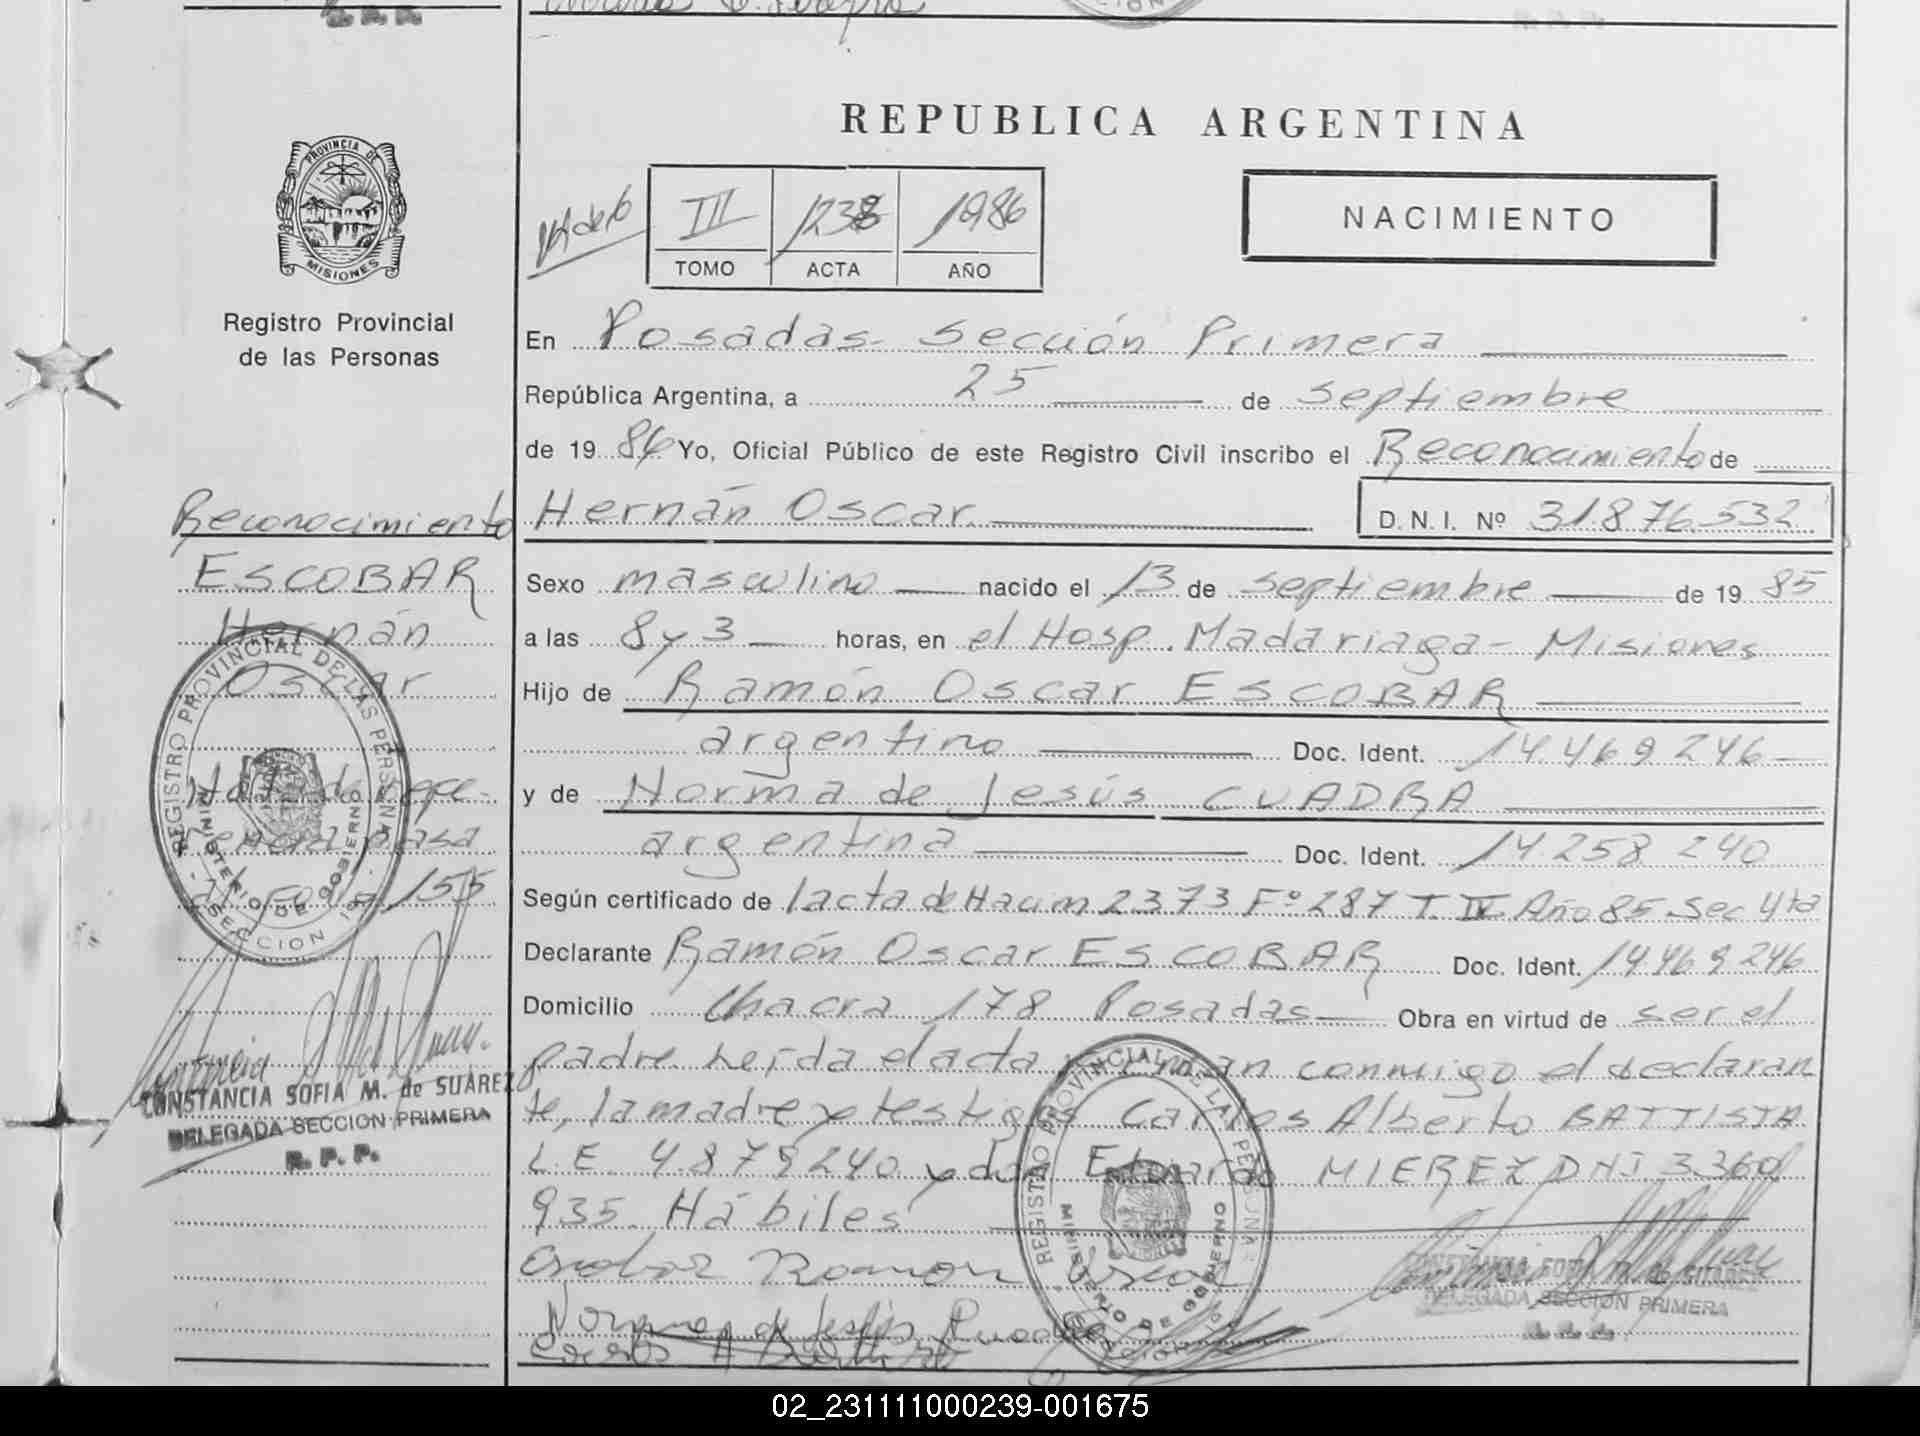 REPUBLICA ARGENTINA
PROVINCIA DE
MISIONES
Registro Provincial
de las Personas
III 1238 1986
TOMO ACTA AÑO
NACIMIENTO
En Posadas- Sección Primera
República Argentina, a 25 de septiembre
de 19 86 Yo, Oficial Público de este Registro Civil inscribo el Reconocimiento de
Hernán Oscar D. N. I. Nº 31.876.532
Sexo masculino nacido el 13 de septiembre de 19 85
a las 8 y 3 horas, en el Hosp. Madariaga - Misiones
Hijo de Ramón Oscar ESCOBAR
argentino Doc. Ident. 14.469.246
y de Norma de Jesús CUADRA
argentina Doc. Ident. 14 258 240
Según certificado de lacta de Nacim 2373 Fº 287 T. IV Año 85 Sec 4ta
Declarante Ramón Oscar ESCOBAR Doc. Ident. 14 469 246
Domicilio Chacra 178 Posadas Obra en virtud de ser el
padre. Leída el acta firman conmigo el declaran
te, la madre y testigos Carlos Alberto BATTISTA
L.E. 4.879.240 y don Eduardo MIEREZ DNI 3.360
935. Hábiles
Escobar Ramon Oscar
Norma de Jesús Cuadra
Carlos A Battista
REGISTRO PROVINCIAL DE LAS PERSONAS
MINISTERIO DE GOBIERNO
DELEGADA SECCION PRIMERA
Reconocimiento
ESCOBAR
Hernán
Oscar
REGISTRO PROVINCIAL DE LAS PERSONAS
MINISTERIO DE GOBIERNO
SECCION 1ª
Nota de
pasa
155
CONSTANCIA SOFIA M. de SUAREZ
DELEGADA SECCION PRIMERA
R. P. P.
02_231111000239-001675